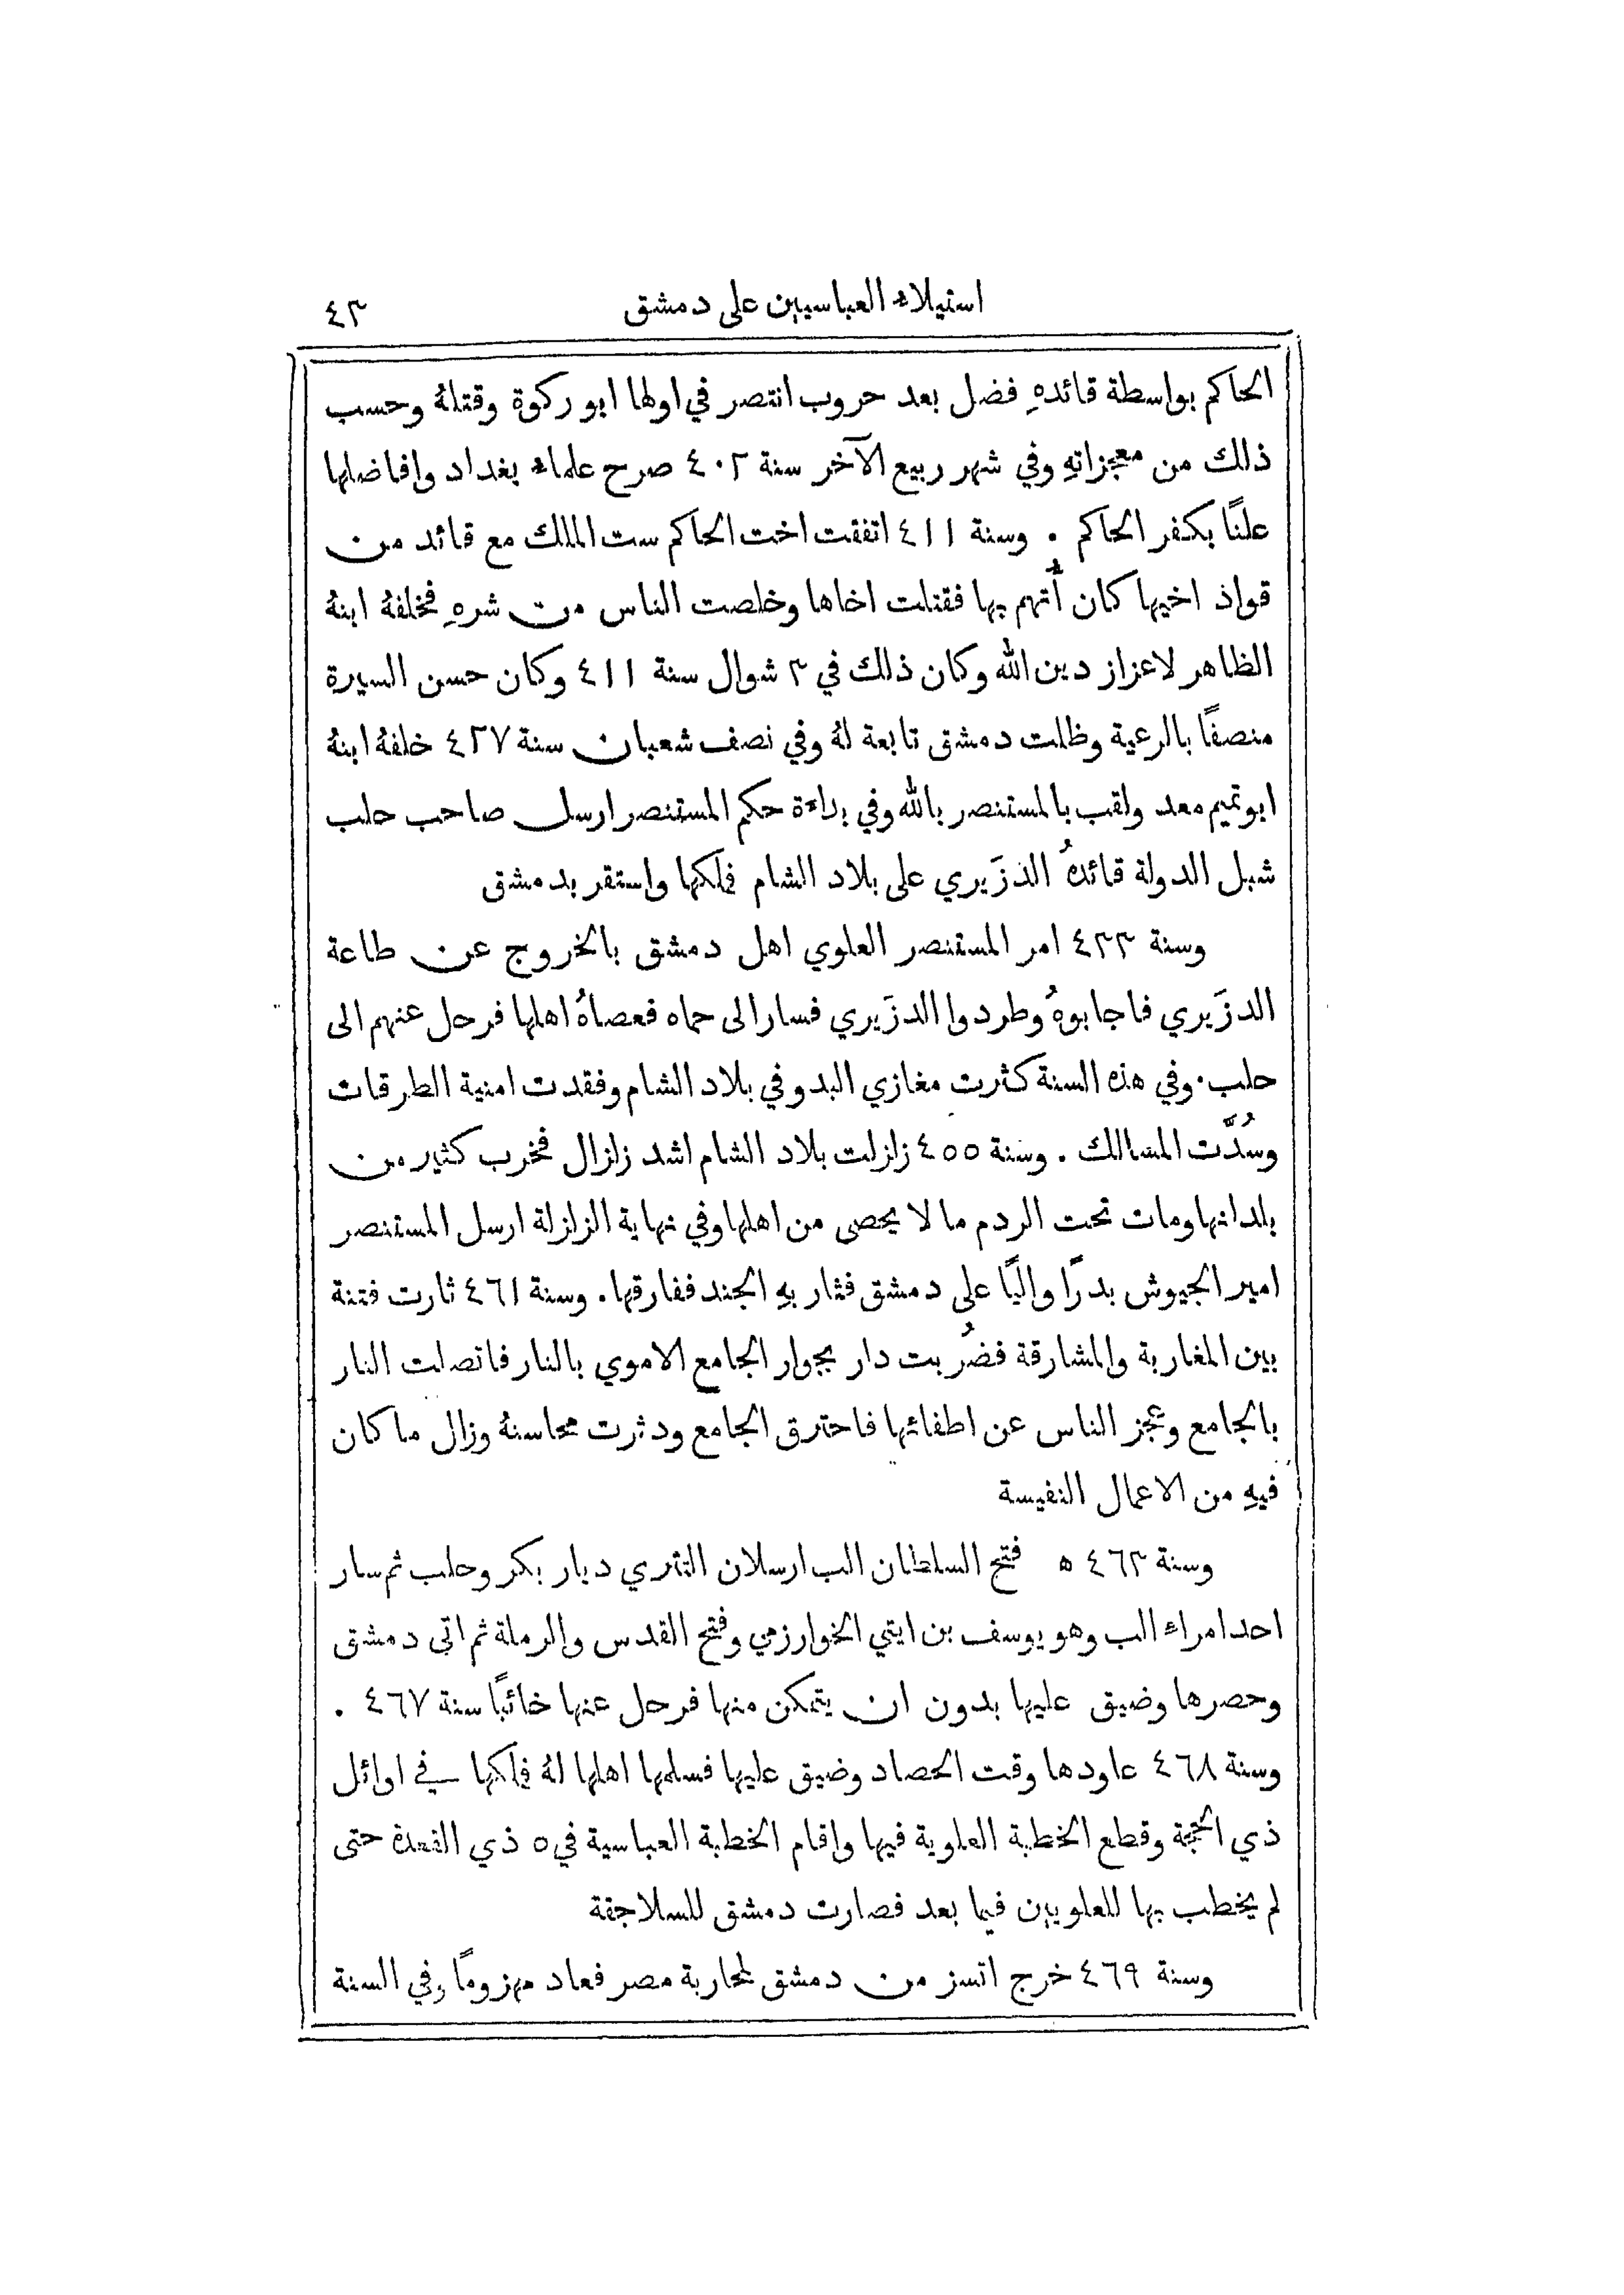 استيلاء العباسيين على دمشق ٤٣
الحاكم بواسطة قائدهِ فضل بعد حروب انتصر في اولها ابو ركوة وقتلهُ وحسب
ذلك من معجزاتهِ وفي شهر ربيع الآخر سنة ٤٠٢ صرح علماء بغداد وافاضلها
علنًا بكفر الحاكم . وسنة ٤١١ اتفقت اخت الحاكم ست الملك مع قائد من
قواذ اخيها كان أُتهم بها فقتلت اخاها وخلصت الناس من شرهِ فخلفهُ ابنهُ
الظاهر لاعزاز دين الله وكان ذلك في ٣ شوال سنة ٤١١ وكان حسن السيرة
منصفًا بالرعية وظلت دمشق تابعة لهُ وفي نصف شعبان سنة ٤٢٧ خلفهُ ابنهُ
ابو تميم معد ولقب بالمستنصر بالله وفي بداءة حكم المستنصر ارسل صاحب حلب
شبل الدولة قائدهُ الدزَيري على بلاد الشام فملكها واستقر بدمشق
وسنة ٤٣٣ امر المستنصر العلوي اهل دمشق بالخروج عن طاعة
الدزَيري فاجابوهُ وطردوا الدزَيري فسار الى حماه فعصاهُ اهلها فرحل عنهم الى
حلب . وفي هذه السنة كثرت مغازي البدو في بلاد الشام وفقدت امنية الطرقات
وسُدَّت المسالك . وسنة ٤٥٥ زلزلت بلاد الشام اشد زلزال فخرب كثير من
بلدانها ومات تحت الردم ما لا يحصى من اهلها وفي نهاية الزلزلة ارسل المستنصر
امير الجيوش بدرًا واليًا على دمشق فثار بهِ الجند ففارقها . وسنة ٤٦١ ثارت فتنة
بين المغاربة والمشارقة فضُربت دار بجوار الجامع الاموي بالنار فاتصلت النار
بالجامع وعجز الناس عن اطفائها فاحترق الجامع ودثرت محاسنهُ وزال ما كان
فيهِ من الاعمال النفيسة
وسنة ٤٦٣ ه فتح السلطان الب ارسلان التتري ديار بكر وحلب ثم سار
احد امراء الب وهو يوسف بن ايتي الخوارزمي وفتح القدس والرملة ثم اتى دمشق
وحصرها وضيق عليها بدون ان يتمكن منها فرحل عنها خائبًا سنة ٤٦٧ .
وسنة ٤٦٨ عاودها وقت الحصاد وضيق عليها فسلمها اهلها لهُ فملكها في اوائل
ذي الحجة وقطع الخطبة العلوية فيها واقام الخطبة العباسية في ٥ ذي القعدة حتى
لم يخطب بها للعلويين فيما بعد فصارت دمشق للسلاجقة
وسنة ٤٦٩ خرج اتسز من دمشق لمحاربة مصر فعاد مهزومًا وفي السنة